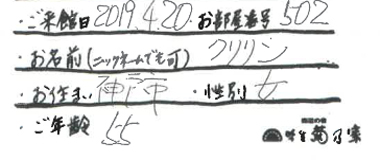 ・ご来館日 2019.4.20.お部屋番号 502
・お名前(ニックネームでも可) クリリン
・お住まい 神戸 ・性別 女
・ご年齢 55
味と菊乃家